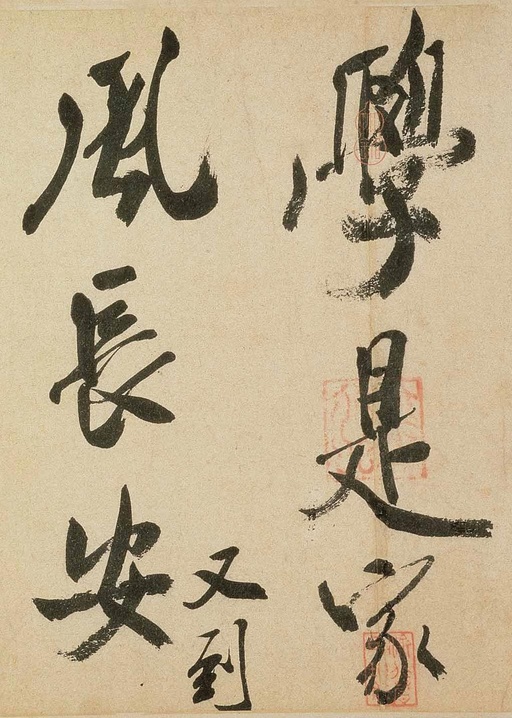 學是家
風長安
又到